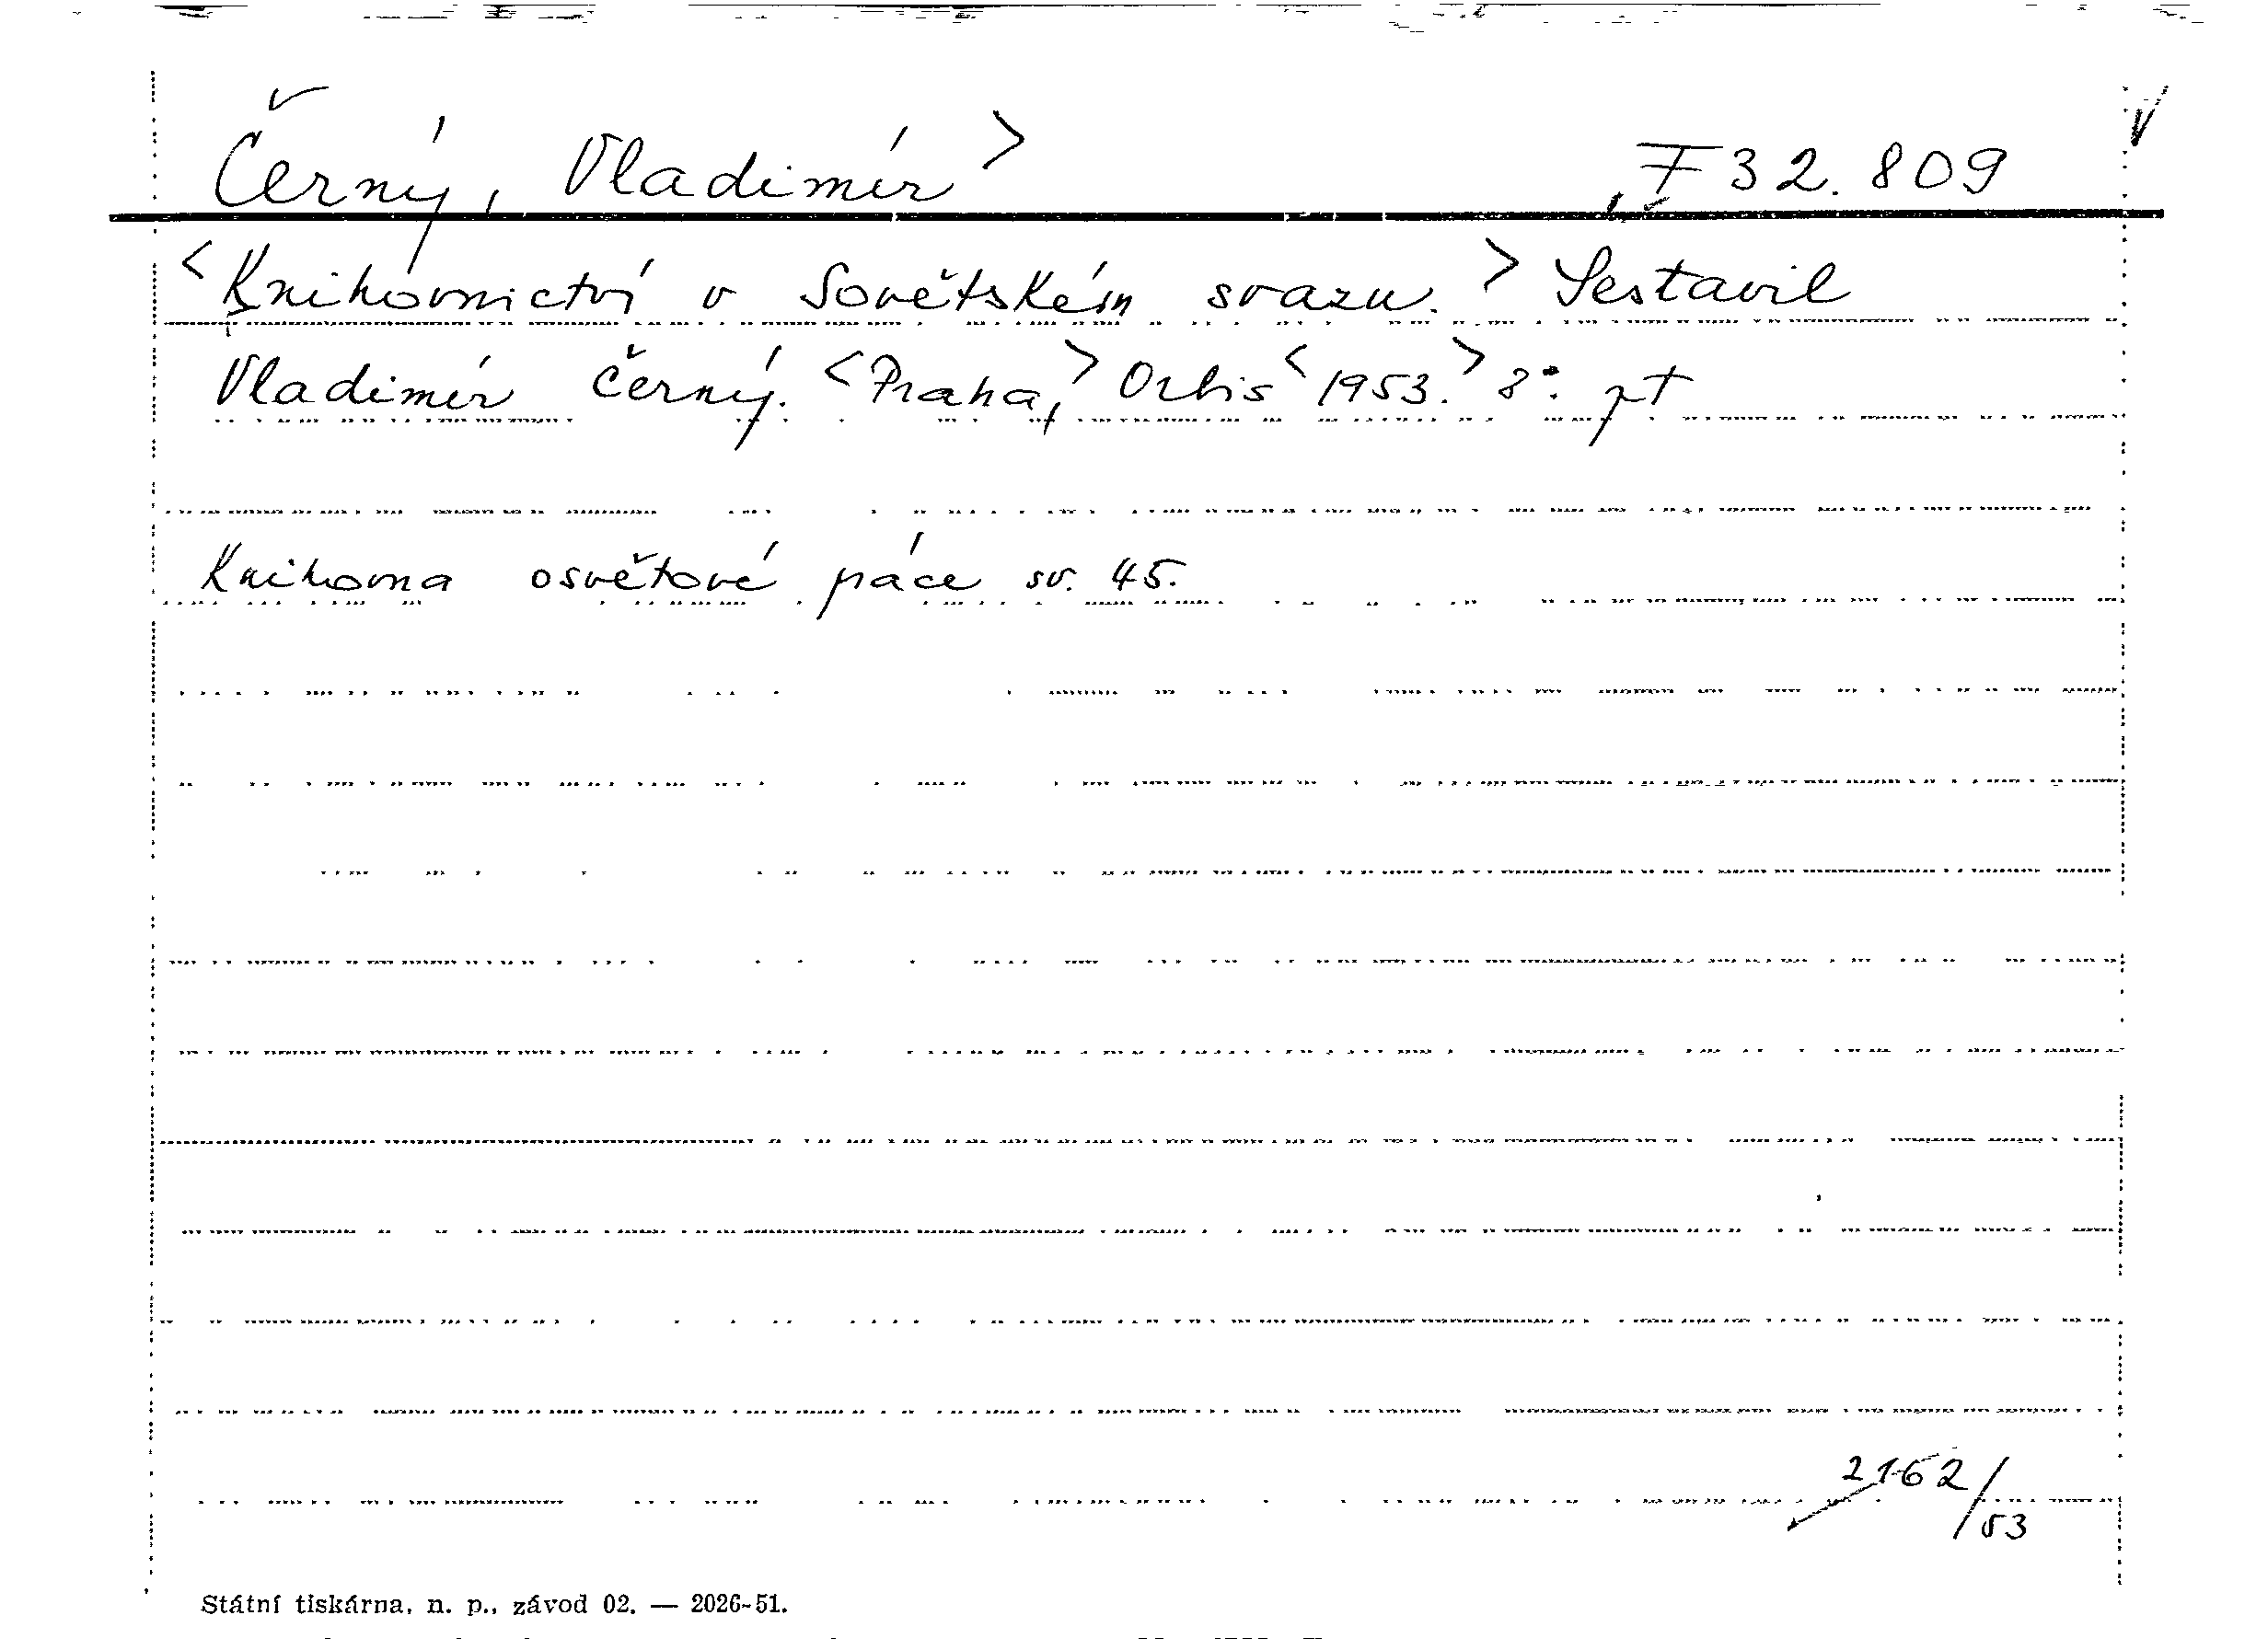 Černý, Vladimír > F 32.809
<Knihovnictví v Sovětském svazu.> Sestavil
Vladimír Černý. <Praha,> Orbis <1953.> 8°. pt
Knihovna osvětové páce sv. 45.
2162/53
Státní tiskárna, n. p., závod 02. — 2026-51.